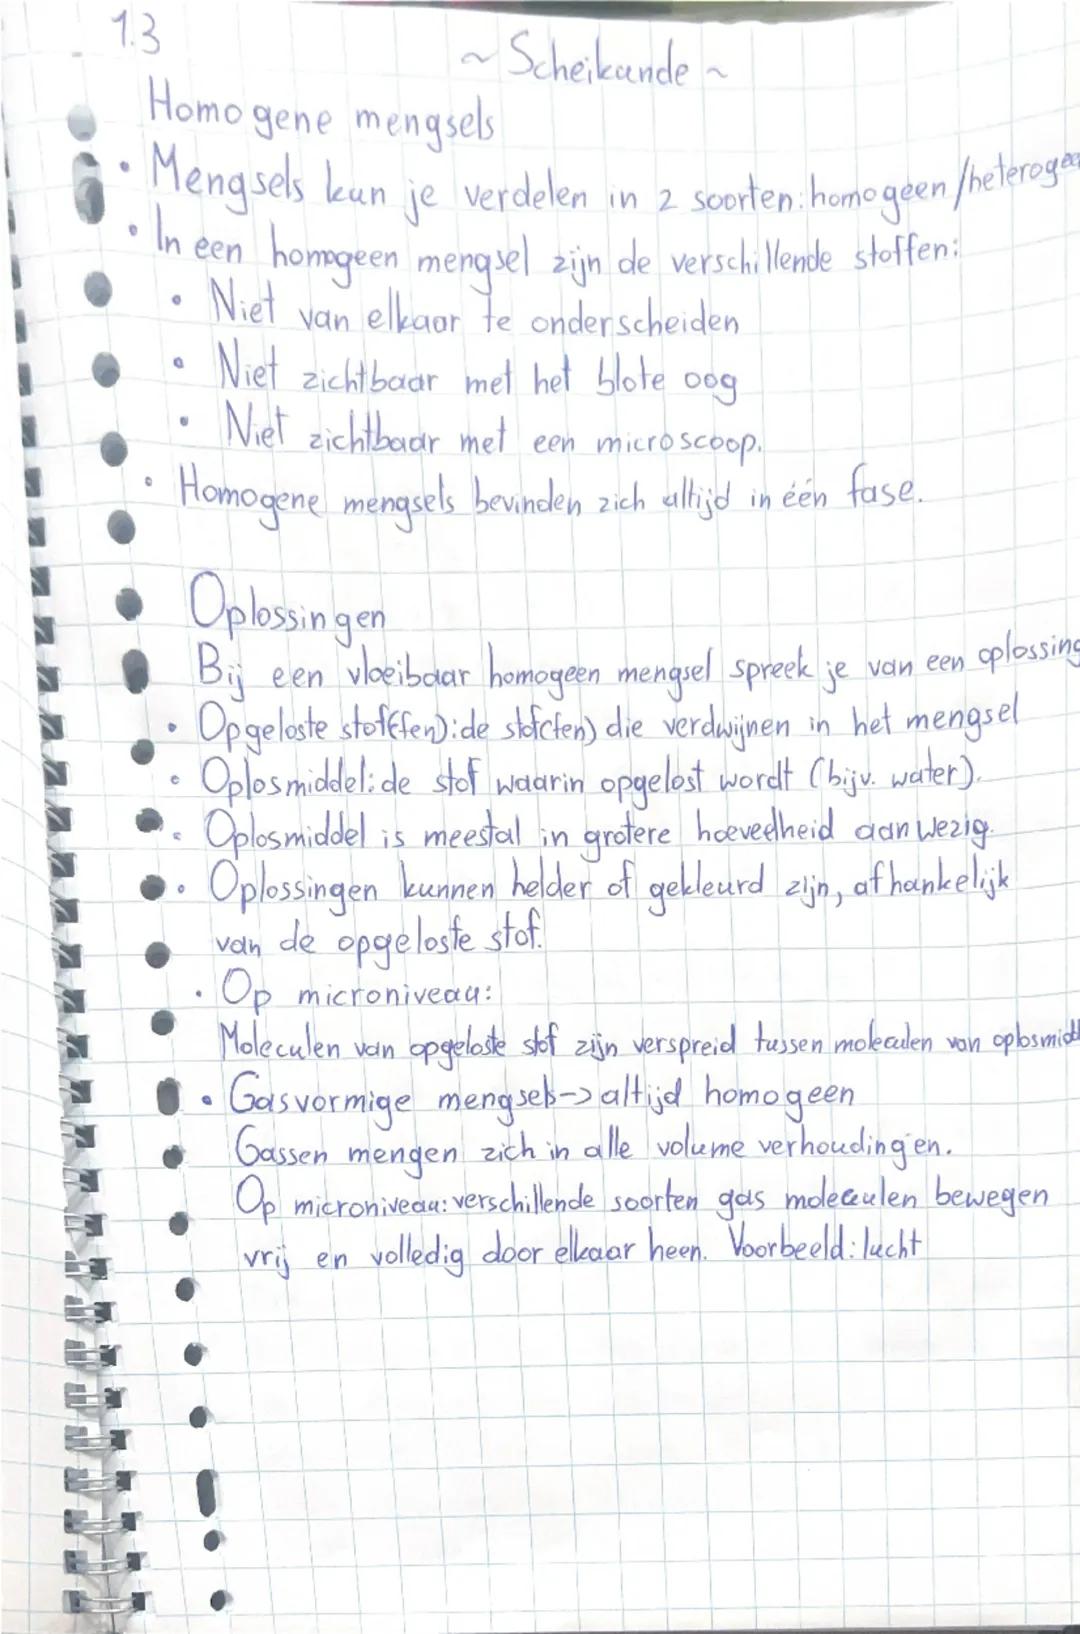 1.3
~ Scheikunde ~
Homogene mengsels
• Mengsels kun je verdelen in 2 soorten: homogeen/heterogeen
• In een homogeen mengsel zijn de verschillende stoffen:
• Niet van elkaar te onderscheiden
• Niet zichtbaar met het blote oog
• Niet zichtbaar met een microscoop.
• Homogene mengsels bevinden zich altijd in één fase.
Oplossingen
Bij een vloeibaar homogeen mengsel spreek je van een oplossing
• Opgeloste stof(fen): de stof(fen) die verdwijnen in het mengsel
• Oplosmiddel: de stof waarin opgelost wordt (bijv. water).
• Oplosmiddel is meestal in grotere hoeveelheid aanwezig.
• Oplossingen kunnen helder of gekleurd zijn, afhankelijk
van de opgeloste stof.
• Op microniveau:
Moleculen van opgeloste stof zijn verspreid tussen moleculen van oplosmidd
• Gasvormige mengsels -> altijd homogeen
Gassen mengen zich in alle volume verhoudingen.
Op microniveau: verschillende soorten gas moleculen bewegen
vrij en volledig door elkaar heen. Voorbeeld: lucht